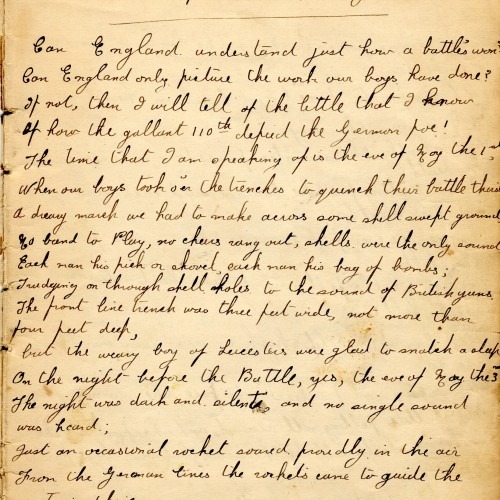 Can England understand just how a battle's won
Can England only picture the work our boys have done?
If not, then I will tell of the little that I know
Of how the gallant 110th defied the German foe!
The time that I am speaking of is the eve of May the 1st
When our boys took o'er the trenches to quench their battle thirst
A dreary march we had to make across some shell swept ground
No band to play, no cheers rang out, shells were the only sound
Each man his pick or shovel, each man his bag of bombs;
Trudging on through shell holes to the sound of British guns
The front line trench was three feet wide, not more than
four feet deep,
but the weary boy of Leicesters were glad to snatch a sleep
On the night before the Battle, yes, the eve of May the
The night was dark and silent, and no single sound
was heard;
Just an occasional rocket soared proudly in the air
From the German lines the rockets came to guide the